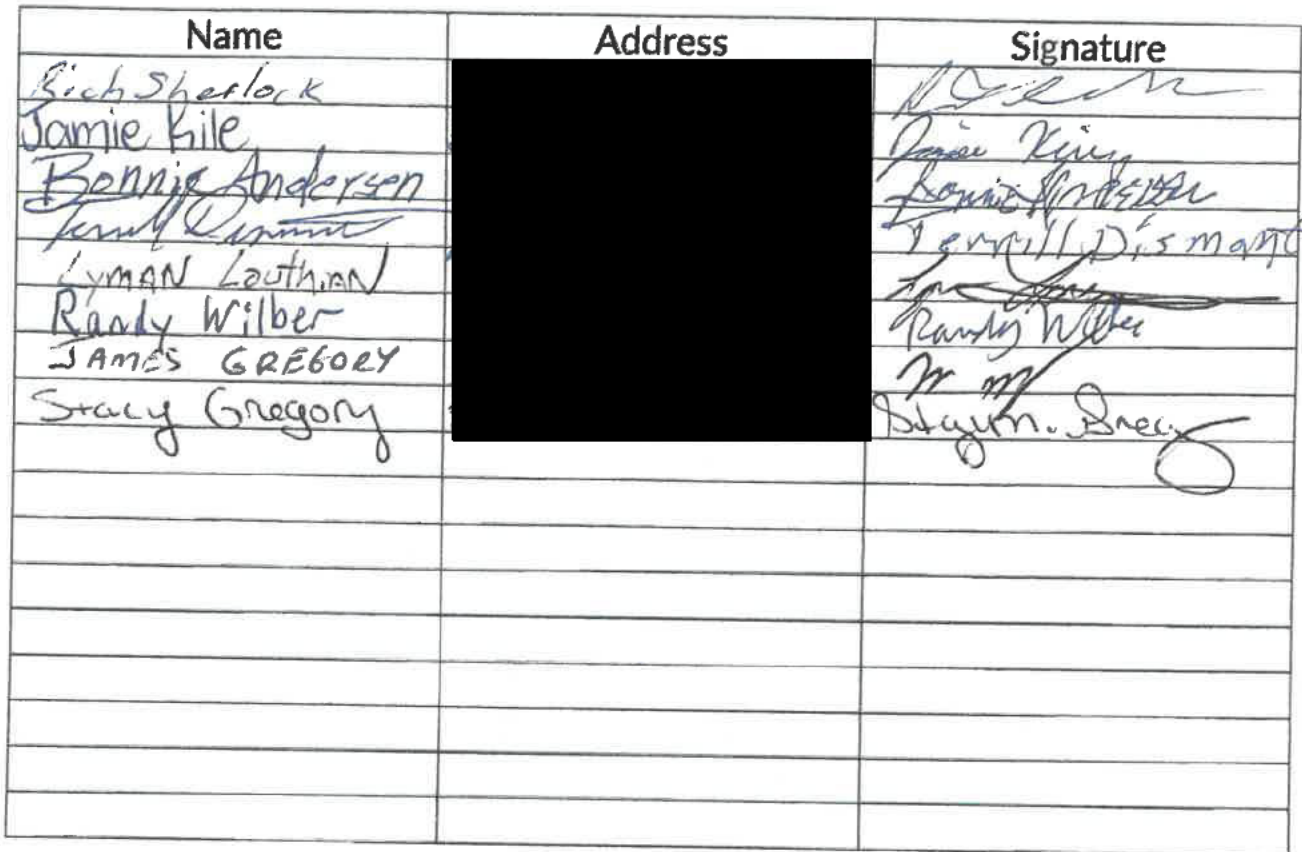 Name Address Signature
Rich Sherlock
Jamie Kile Jamie
Bonnie Andersen Bonnie Andersen
Terrill Dismant
Lyman Louthian
Randy Wilber Randy Wilber
JAMES GREGORY
Stacy Gregory